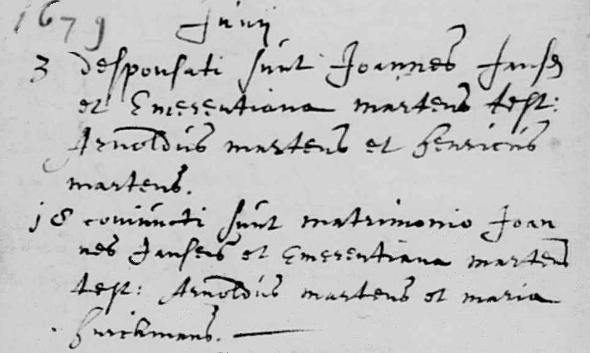 1679 Junij
3 desponsati sunt Joannes Jansen
et Emerentiana martens test:
Arnoldus martens et henricus
martens.
18 coniuncti sunt matrimonio Joan
nes Jansens et Emerentiana martens
test: Arnoldus martens et maria